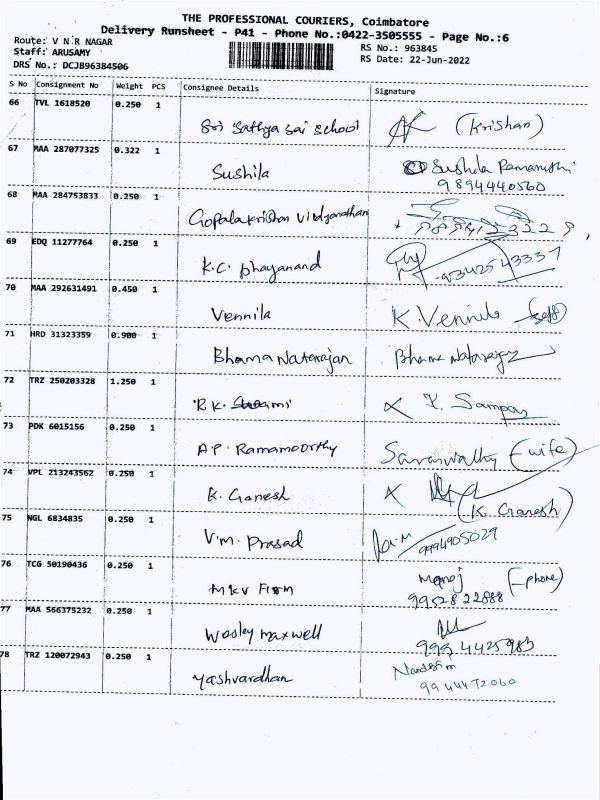 THE PROFESSIONAL COURIERS, Coimbatore
Delivery Runsheet - P41 - Phone No.:0422-3505555 - Page No.:6
Route: V N R NAGAR
Staff: ARUSAMY
DRS No.: DCJB96384506
RS No.: 963845
RS Date: 22-Jun-2022
S No Consignment No Weight PCS Consignee Details Signature
66 TVL 1618520 0.250 1
Sri Sathya Sai School (Krishan)
67 MAA 287077325 0.322 1
Sushila Sushila
9894440560
68 MAA 284753833 0.250 1
Gopalakrishan Vidyanathan
69 EDQ 11277764 0.250 1
K.C. Dhayanand 9342543337
70 MAA 292631491 0.450 1
Vennila K. Vennila (self)
71 HRD 31323359 0.900 1
Bhama Natarajan Bhama Natarajan
72 TRZ 250203328 1.250 1
R.K.
73 PDK 6015156 0.250 1
A.P. Ramamoorthy Saraswathy (wife)
74 VPL 213243562 0.250 1
K. Ganesh (K. Ganesh)
75 NGL 6834835 0.250 1
V.M. Prasad 9994905029
76 TCG 50190436 0.250 1
MKV Firm Manoj (-phone)
9952822888
77 MAA 566375232 0.250 1
Wesley maxwell
9994425983
78 TRZ 120072943 0.250 1
Yashvardhan
9944472060